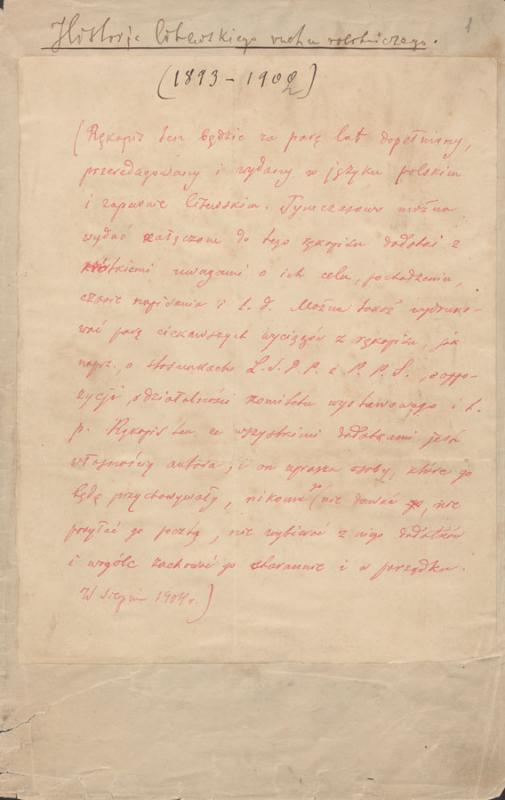 1
Historja litewskiego ruchu robotniczego.
(1893 – 1902)
(Rękopis ten będzie za parę lat dopełniony,
przeredagowany i wydany w języku polskim
i zapewne litewskim. Tymczasowo można
wydać załączone do tego rękopisu dodatki z
krótkiemi uwagami o ich celu, pochodzeniu,
czasie napisania i t. d. Można także wydruko-
wać parę ciekawszych wyciągów z rękopisu, jak
napr., o stosunkach L.S.D.P. i P.P.S., oopo-
zycji, o działalności komitetu wystawowego i t.
p. Rękopis ten ze wszystkiemi dodatkami jest
własnością autora, i on uprasza osoby, które go
będą przychowywały, nikomu go nie dawać, nie
posyłać go pocztą, nie wybierać z niego dodatków
i wogóle zachować go starannie i w porządku.
W sierpniu 1904 r.)